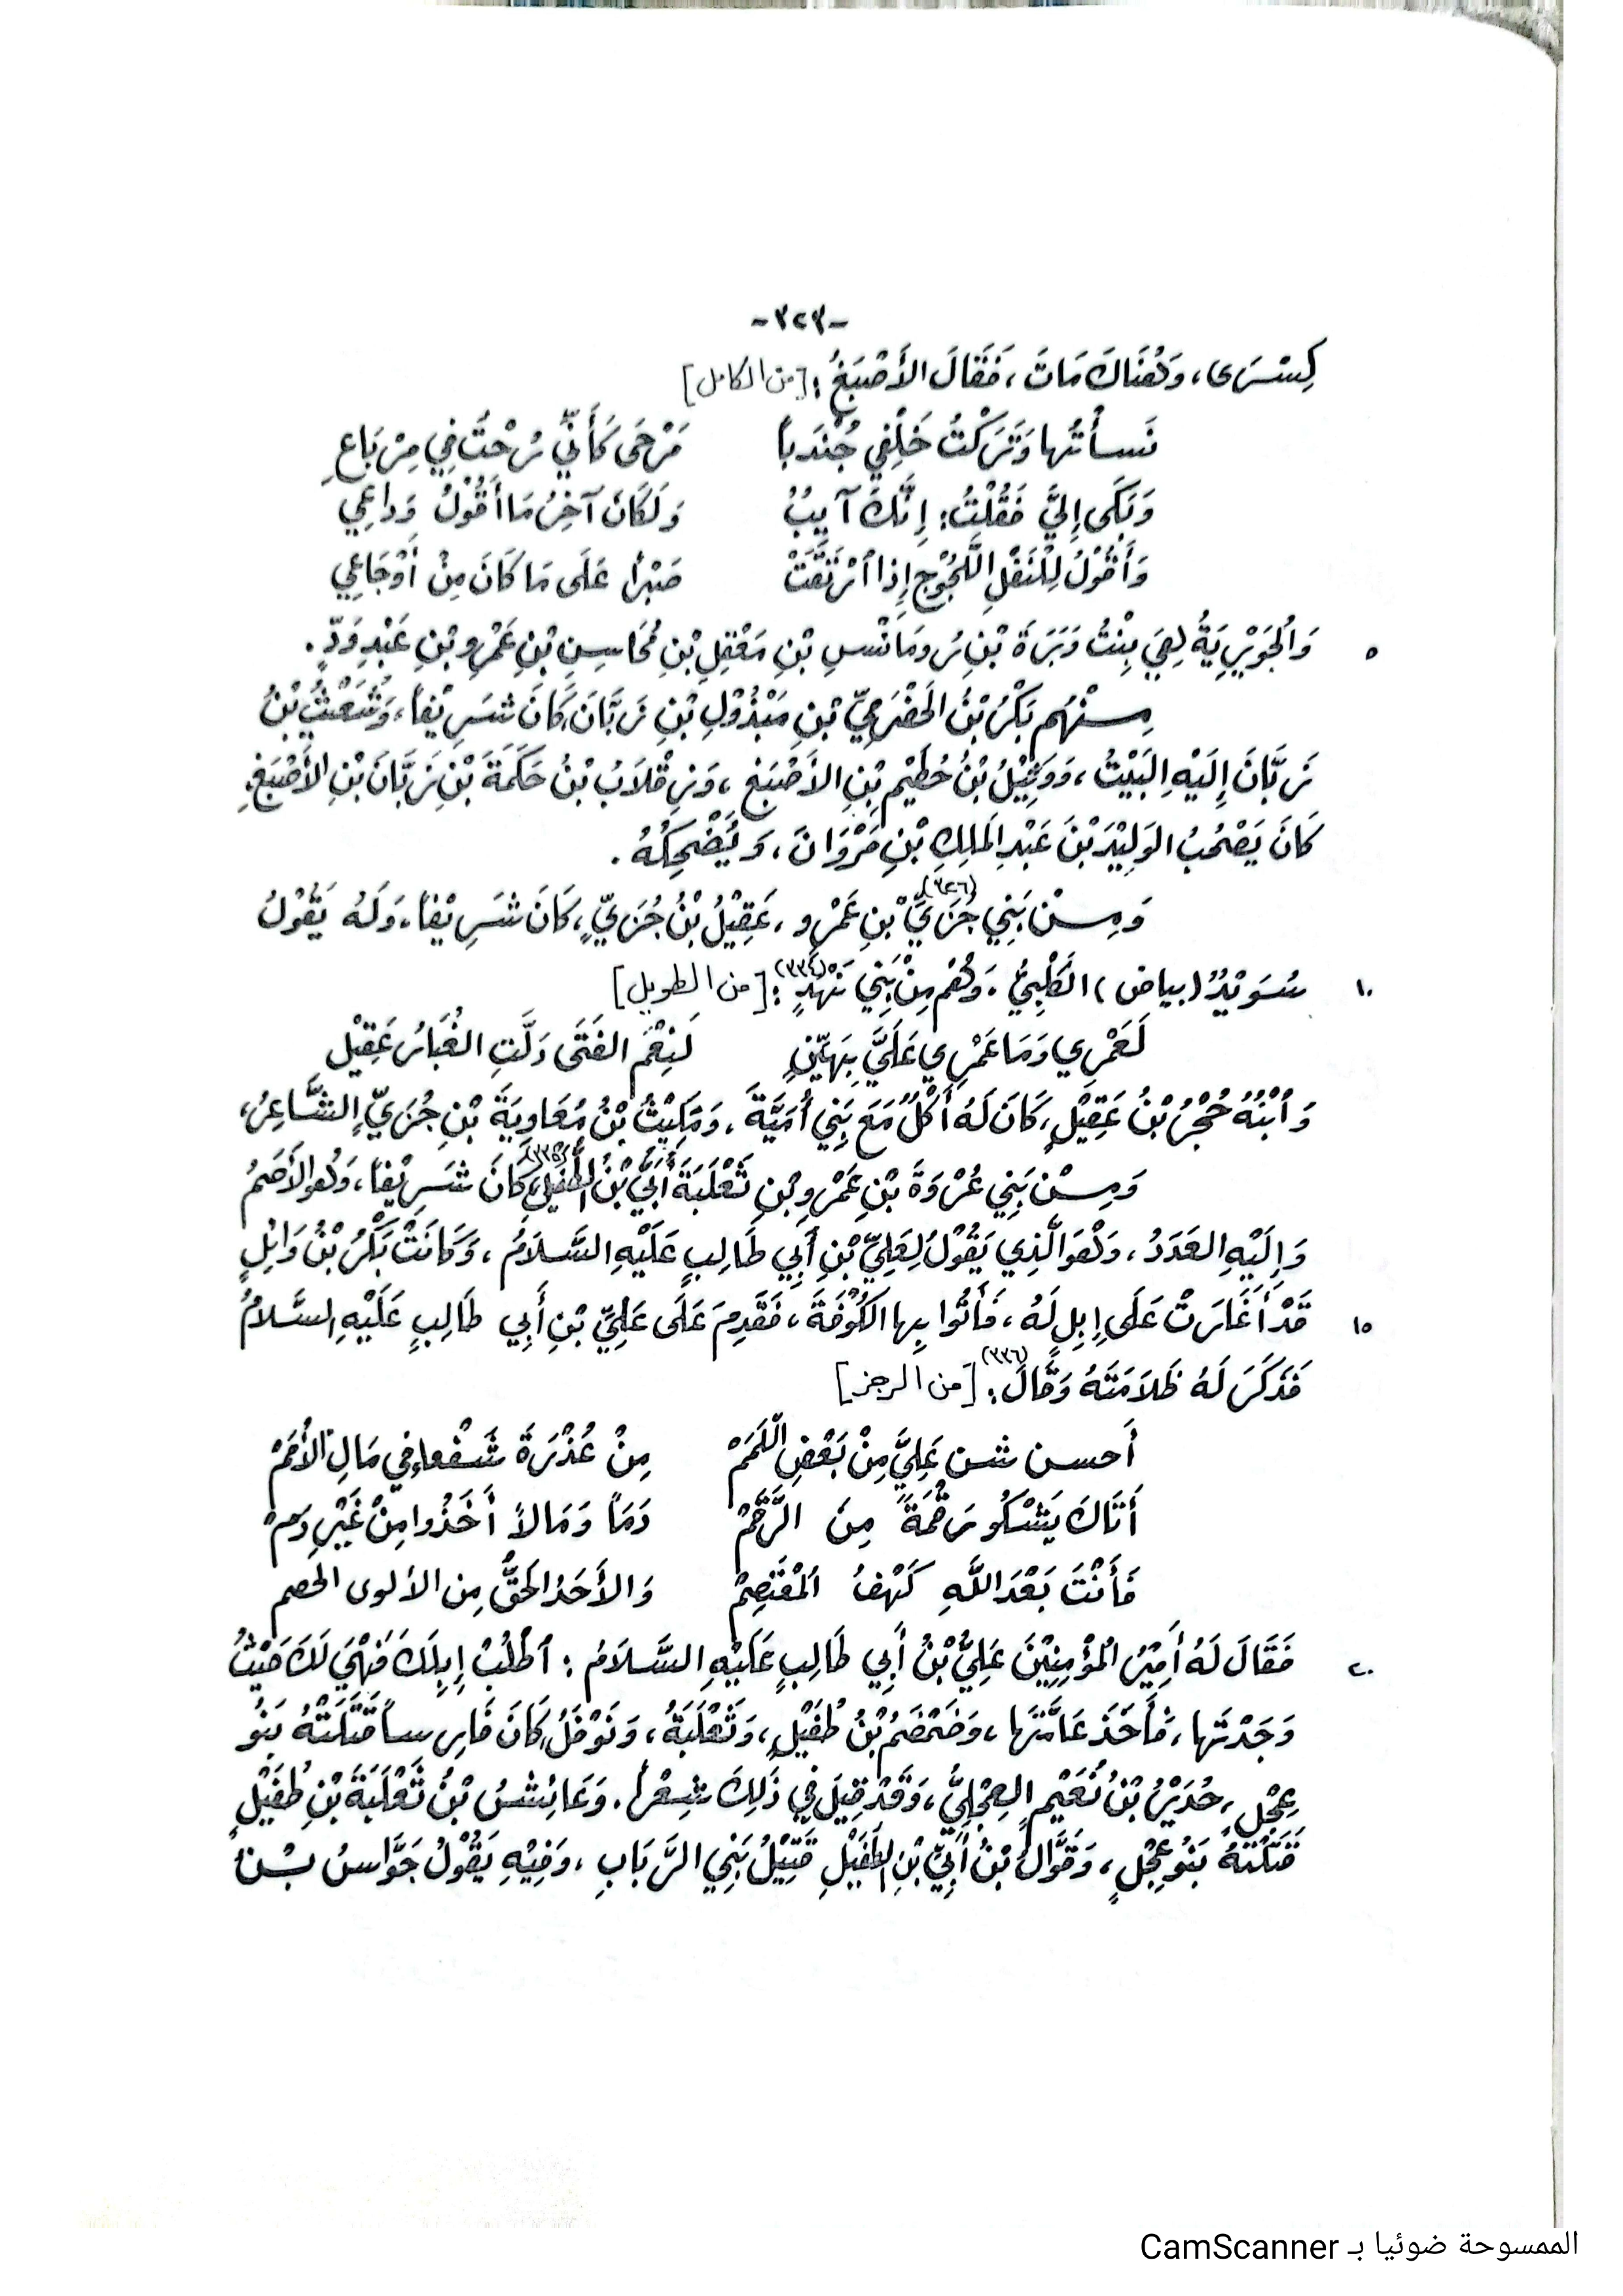 -٣٢٣-
كِسْرَى، وَهُنَاكَ مَاتَ، فَقَالَ الأَصْبَغُ: [من الكامل]
نَسأْتُها وَتَرَكْتُ خَلْفِي جُنْدَباً مَرْحَى كَأَنِّي رُحْتُ فِي مِرْبَاعِ
وَبَكَى إِليَّ فَقُلْتُ: إِنَّكَ آيِبُ وَلَكَانَ آخِرُ مَا أَقُوْلُ وَدَاعِي
وَأَقُوْلُ لِلْنَفْسِ اللَّجُوْجِ إِذا اُرْتَقَتْ صَبْراً عَلَى مَا كَانَ مِنْ أَوْجَاعِي
٥ وَالْجَوَيْرِيَةُ لِهِيَ بِنْتُ وَبَرَةَ بْنِ رُومَانْسِ بْنِ مَعْقِلِ بْنِ مُحَاسِنِ بْنِ عَمْرِو بْنِ عَبْدِ وَدٍّ.
مِنْهُم بَكْرُ بْنُ الحَضْرَمِيِّ بْنِ مَبْذُوْلِ بْنِ زَبَّانَ، كَانَ شَرِيْفاً، وَشُعَيْثُ بْنُ
زَبَّانَ إِلَيْهِ البَيْتُ، وَوَثِيْلُ بْنُ حُطَيْمِ بْنِ الأَصْبَغِ، وَزِقْلَابُ بْنُ حَكَمَةَ بْنِ زَبَّانَ بْنِ الأَصْبَغِ،
كَانَ يَصْحُبُ الوَلِيْدَ بْنَ عَبْدِ المَلِكِ بْنِ مَرْوَانَ، وَيُضْحِكُهُ.
وَمِنْ بَنِي جُزَيِّ (٣٢٦) بْنِ عَمْرِو، عَقِيْلُ بْنُ جُزَيٍّ، كَانَ شَرِيْفاً، وَلَهُ يَقُوْلُ
١٠ سُوَيْدٌ (بياض) الكَلْبِيُّ، وَهُم مِنْ بَنِي نَهْدٍ (٣٣٤): [من الطويل]
لَعَمْرِي وَمَا عَمْرِي عَلَيَّ بِهَيِّنٍ لَنِعْمَ الفَتَى دَلَّتِ الغُبَارُ عَقِيْلِ
وَابْنُهُ حُجْرُ بْنُ عَقِيْلٍ، كَانَ لَهُ أَكْلٌ مَعَ بَنِي أُمَيَّةَ، وَمَكِيْثُ بْنُ مُعَاوِيَةَ بْنِ جُزَيِّ الشَّاعِرُ،
وَمِنْ بَنِي عُرْوَةَ بْنِ عَمْرِو بْنِ ثَعْلَبَةَ أُبَيُّ بْنُ الطُّفَيْلِ (٣٣٥)، كَانَ شَرِيْفاً، وَهُو الأَصَمُّ
وَإِلَيْهِ العَدَدُ، وَهُوَ الَّذِي يَقُوْلُ لِعَلِيِّ بْنِ أَبِي طَالِبٍ عَلَيْهِ السَّلَامُ، وَكَانَتْ بَكْرُ بْنُ وَائِلٍ
١٥ قَدْ أَغَارَتْ عَلَى إِبِلٍ لَهُ، فَأَتُوا بِها الكُوْفَةَ، فَقَدِمَ عَلَى عَلِيِّ بْنِ أَبِي طَالِبٍ عَلَيْهِ السَّلَامُ
فَذَكَرَ لَهُ ظَلَامَتَهُ وَقَالَ (٣٣٦): [من الرجز]
أَحسن شن عَلِيَّ مِنْ بَعْضِ اللَّمَمْ مِنْ عُذْرَةَ شَفْعاءِ فِي مَالِ الأُمَمْ
أَتَاكَ يَشْكُو رَقْمَةً مِنَ الرَّقَمْ دَمَاً وَمَالاً أَخَذُوا مِنْ غَيْرِ دَمْ
فَأَنْتَ بَعْدَ اللَّهِ كَهْفُ المُعْتَصِمْ وَالأَحَدُ الحَقُّ مِن الألوى الخصم
٢٠ فَقَالَ لَهُ أَمِيْرُ المُؤْمِنِيْنَ عَلِيُّ بْنُ أَبِي طَالِبٍ عَلَيْهِ السَّلَامُ: اُطْلُبْ إِبِلَكَ فَهْيَ لَكَ حَيْثُ
وَجَدْتَها، فَأَخَذَ عَامَّتَهَا، وَضَمْضَمُ بْنُ طُفَيْلٍ، وَثَعْلَبَةُ، وَنَوْفَلُ، كَانَ فَارِساً قَتَلَتْهُ بَنُو
عِجْلٍ، حُدَيْرُ بْنُ نُعَيْمٍ العِجْلِيُّ، وَقَدْ قِيْلَ فِي ذَلِكَ شِعْراً. وَعَائِشُ بْنُ ثَعْلَبَةَ بْنِ طُفَيْلٍ
قَتَلَتْهُ بَنُو عِجْلٍ، وَقَوَّالُ بْنُ أُبَيِّ بْنِ الطُّفَيْلِ قَتِيْلُ بَنِي الرَّبَابِ، وَفِيْهِ يَقُوْلُ جَوَّاسُ بْنُ
الممسوحة ضوئيا بـ CamScanner